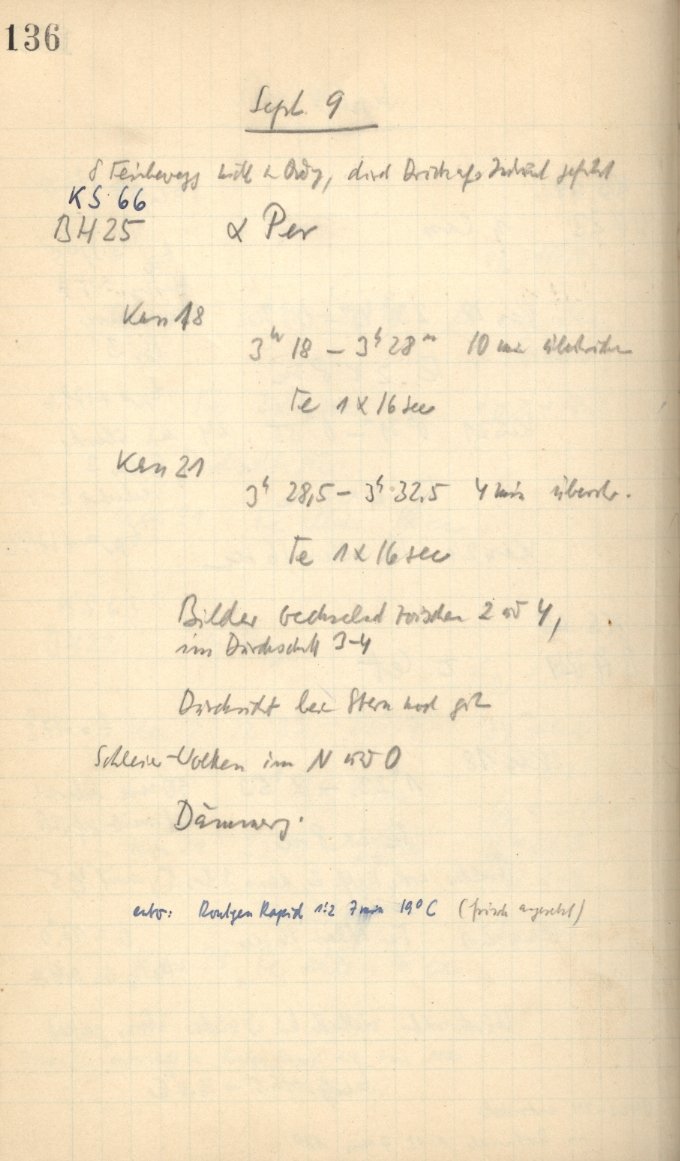 136
Sept. 9
δ Feinbewegg nicht in Ordng, durch
KS 66
BH 25 α Per
Kass 18
3h 18 – 3h 28m 10 min
Te 1 x 16 sec
Kass 21
3h 28,5 – 3h 32,5 4 min überstr.
Te 1 x 16 sec
Bilder wechselnd zwischen 2 und 4,
im Durchschnitt 3–4
Durchsicht bei Stern noch gut
Schleier-Wolken im N und O
Dämmerg.
entw: Röntgen Rapid 1:2 7 min 19° C (frisch angesetzt)